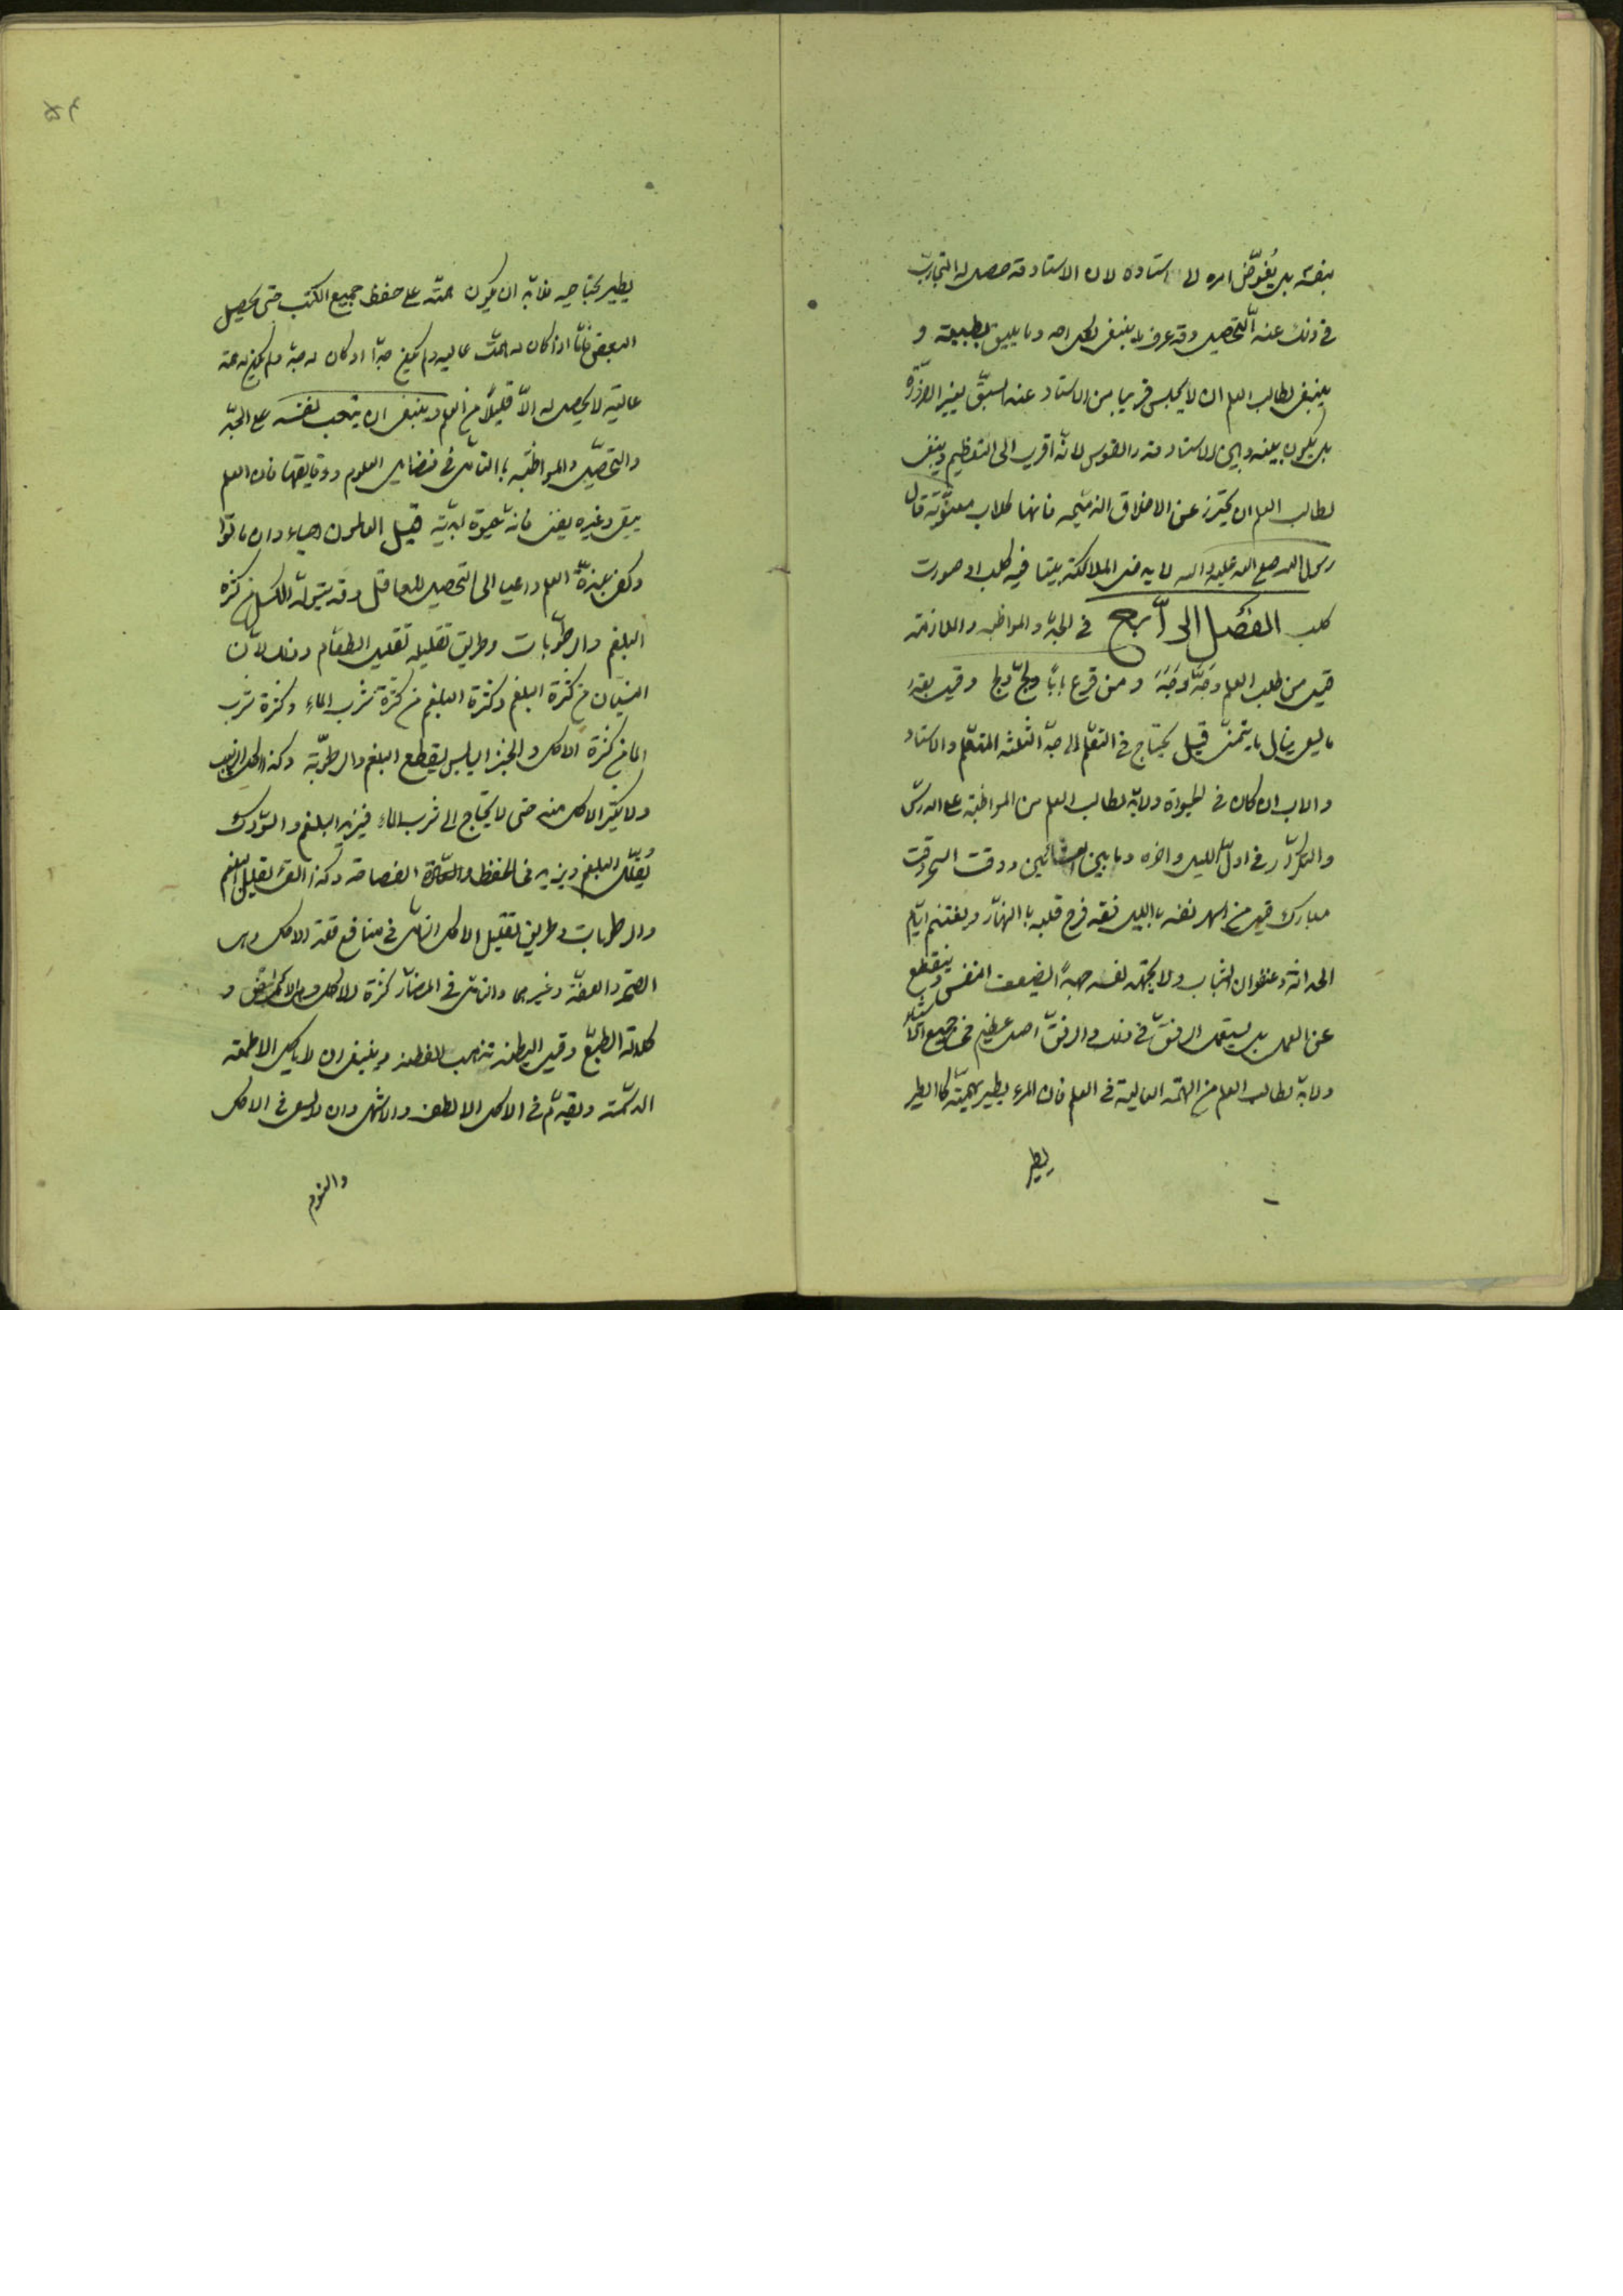 بنفسه بل يُفوّض امره الى استاده لان الاستاد قد حصل له التجارب
فى ذلك عند التّحصيل وقد عرف ما ينبغى لكل احد وما يليق بطبيعته و
ينبغى لطالب العلم ان لا يجلس قريبا من الاستاد عند السبق بغير الضرورة
بل يكون بينه وبين الاستاد قدر القوس لانه اقرب الى التعظيم وينبغى
لطالب العلم ان يحترز عن الاخلاق الذميمه فانها كلاب معنويّة قال
رسول الله صلى الله عليه واله لا يدخل الملائكة بيتا فيه كلب او صورت
كلب الفصل الرابع فى الجدّ والمواظبه والملازمة
قيل من طلب العلم وجدّ وَجَدَ ومن قرع باباً ولجّ ولج وقيل بقدر
ما يسعى ينال ما يتمنى قيل يحتاج فى التعلم الى جدّ الثلثه المتعلم والاستاد
والاب ان كان فى الحيوة ولابدّ لطالب العلم من المواظبة على الدرس
والتكرار فى اول الليل واخره وما بين العشائين ووقت السحر وقت
مبارك قيل من اسهر نفسه بالليل فقد فرح قلبه با النهار ويغتنم ايّام
الحداثة وعنفوان الشباب ولا يجهد نفسه جهداً يضعف النفس وينقطع
عن العمل بل يستعمل الرفق فى ذلك والرفق اصل عظيم فى جميع الاشياء
ولابدّ لطالب العلم من الهمّة العالية فى العلم فان المرء يطير بهمّته كا الطير
يطير
يطير بجناحيه فلابدّ ان يكون همّته على حفظ جميع الكتب حتى يحصل
البعض فامّا اذا كان له همّت عاليه ولم يكن جدّاً او كان له جدّ ولم يكن له همة
عالية لا يحصل له الاّ قليلاً من العلم وينبغى ان يتعب نفسه على الجدّ
والتحصيل والمواظبه با التامّل فى فضايل العلوم ودقايقها فان العلم
يبقى وغيره يفنى فانه حيوة ابديّة قيل العالمون احياء وان ماتوا
وكفى بلذة العلم داعيا الى التحصيل للعاقل وقد يتولد الكسل من كثرة
البلغم والرطوبات وطريق تقليله تقليل الطعام وذلك لانّ
النسيان من كثرة البلغم وكثرة البلغم من كثرة شرب الماء وكثرة شرب
الما من كثرة الاكل والخبز اليابس يقطع البلغم والرطوبة وكذا اكل الزبيب
ولا يكثر الاكل منه حتى لا يحتاج الى شرب الماء فيزيد البلغم والسواك
يُقلّل البلغم ويزيد فى الحفظ الفصاحة وكذا القئ يقلل البلغم
والرطوبات وطريق تقليل الاكل التامّل فى منافع قلة الاكل وهى
الصحّة والعفّة وغيرهما والتامّل فى المضارّ كثرة الاكل و
كلالة الطبع وقيل البطنة تذهب الفطنة وينبغى ان لا ياكل الاطعمة
الدسمة ويقدّم فى الاكل الالطف والاشهى وان لا يسعى فى الاكل
والنوم